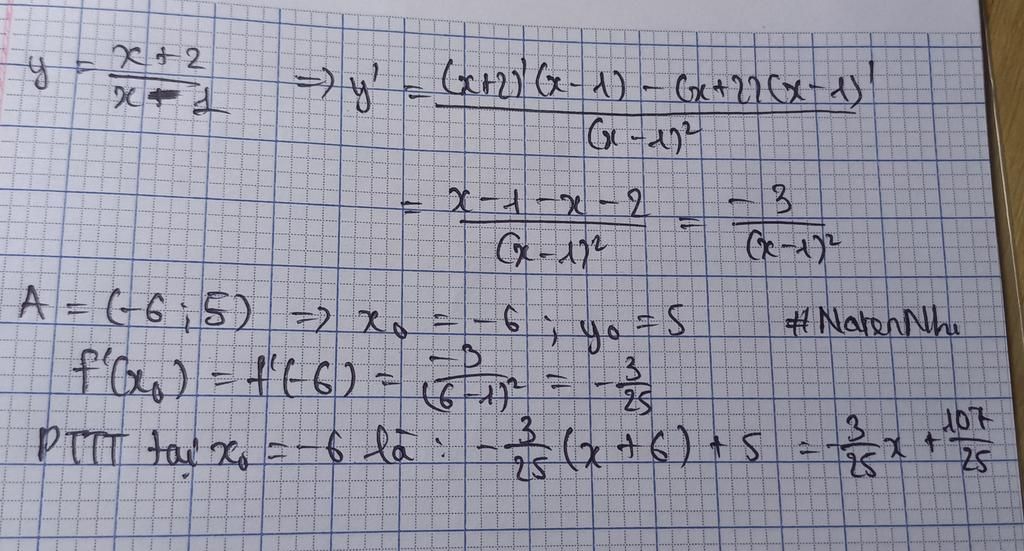 y = \frac{x+2}{x-1} => y' = \frac{(x+2)'(x-1) - (x+2)(x-1)'}{(x-1)^2}
= \frac{x-1-x-2}{(x-1)^2} = \frac{-3}{(x-1)^2}
A = (-6; 5) => x_0 = -6; y_0 = 5 #NarenNhi
f'(x_0) = f'(-6) = \frac{-3}{(6-1)^2} = -\frac{3}{25}
PTTT tại x_0 = -6 là: -\frac{3}{25}(x+6)+5 = -\frac{3}{25}x + \frac{107}{25}